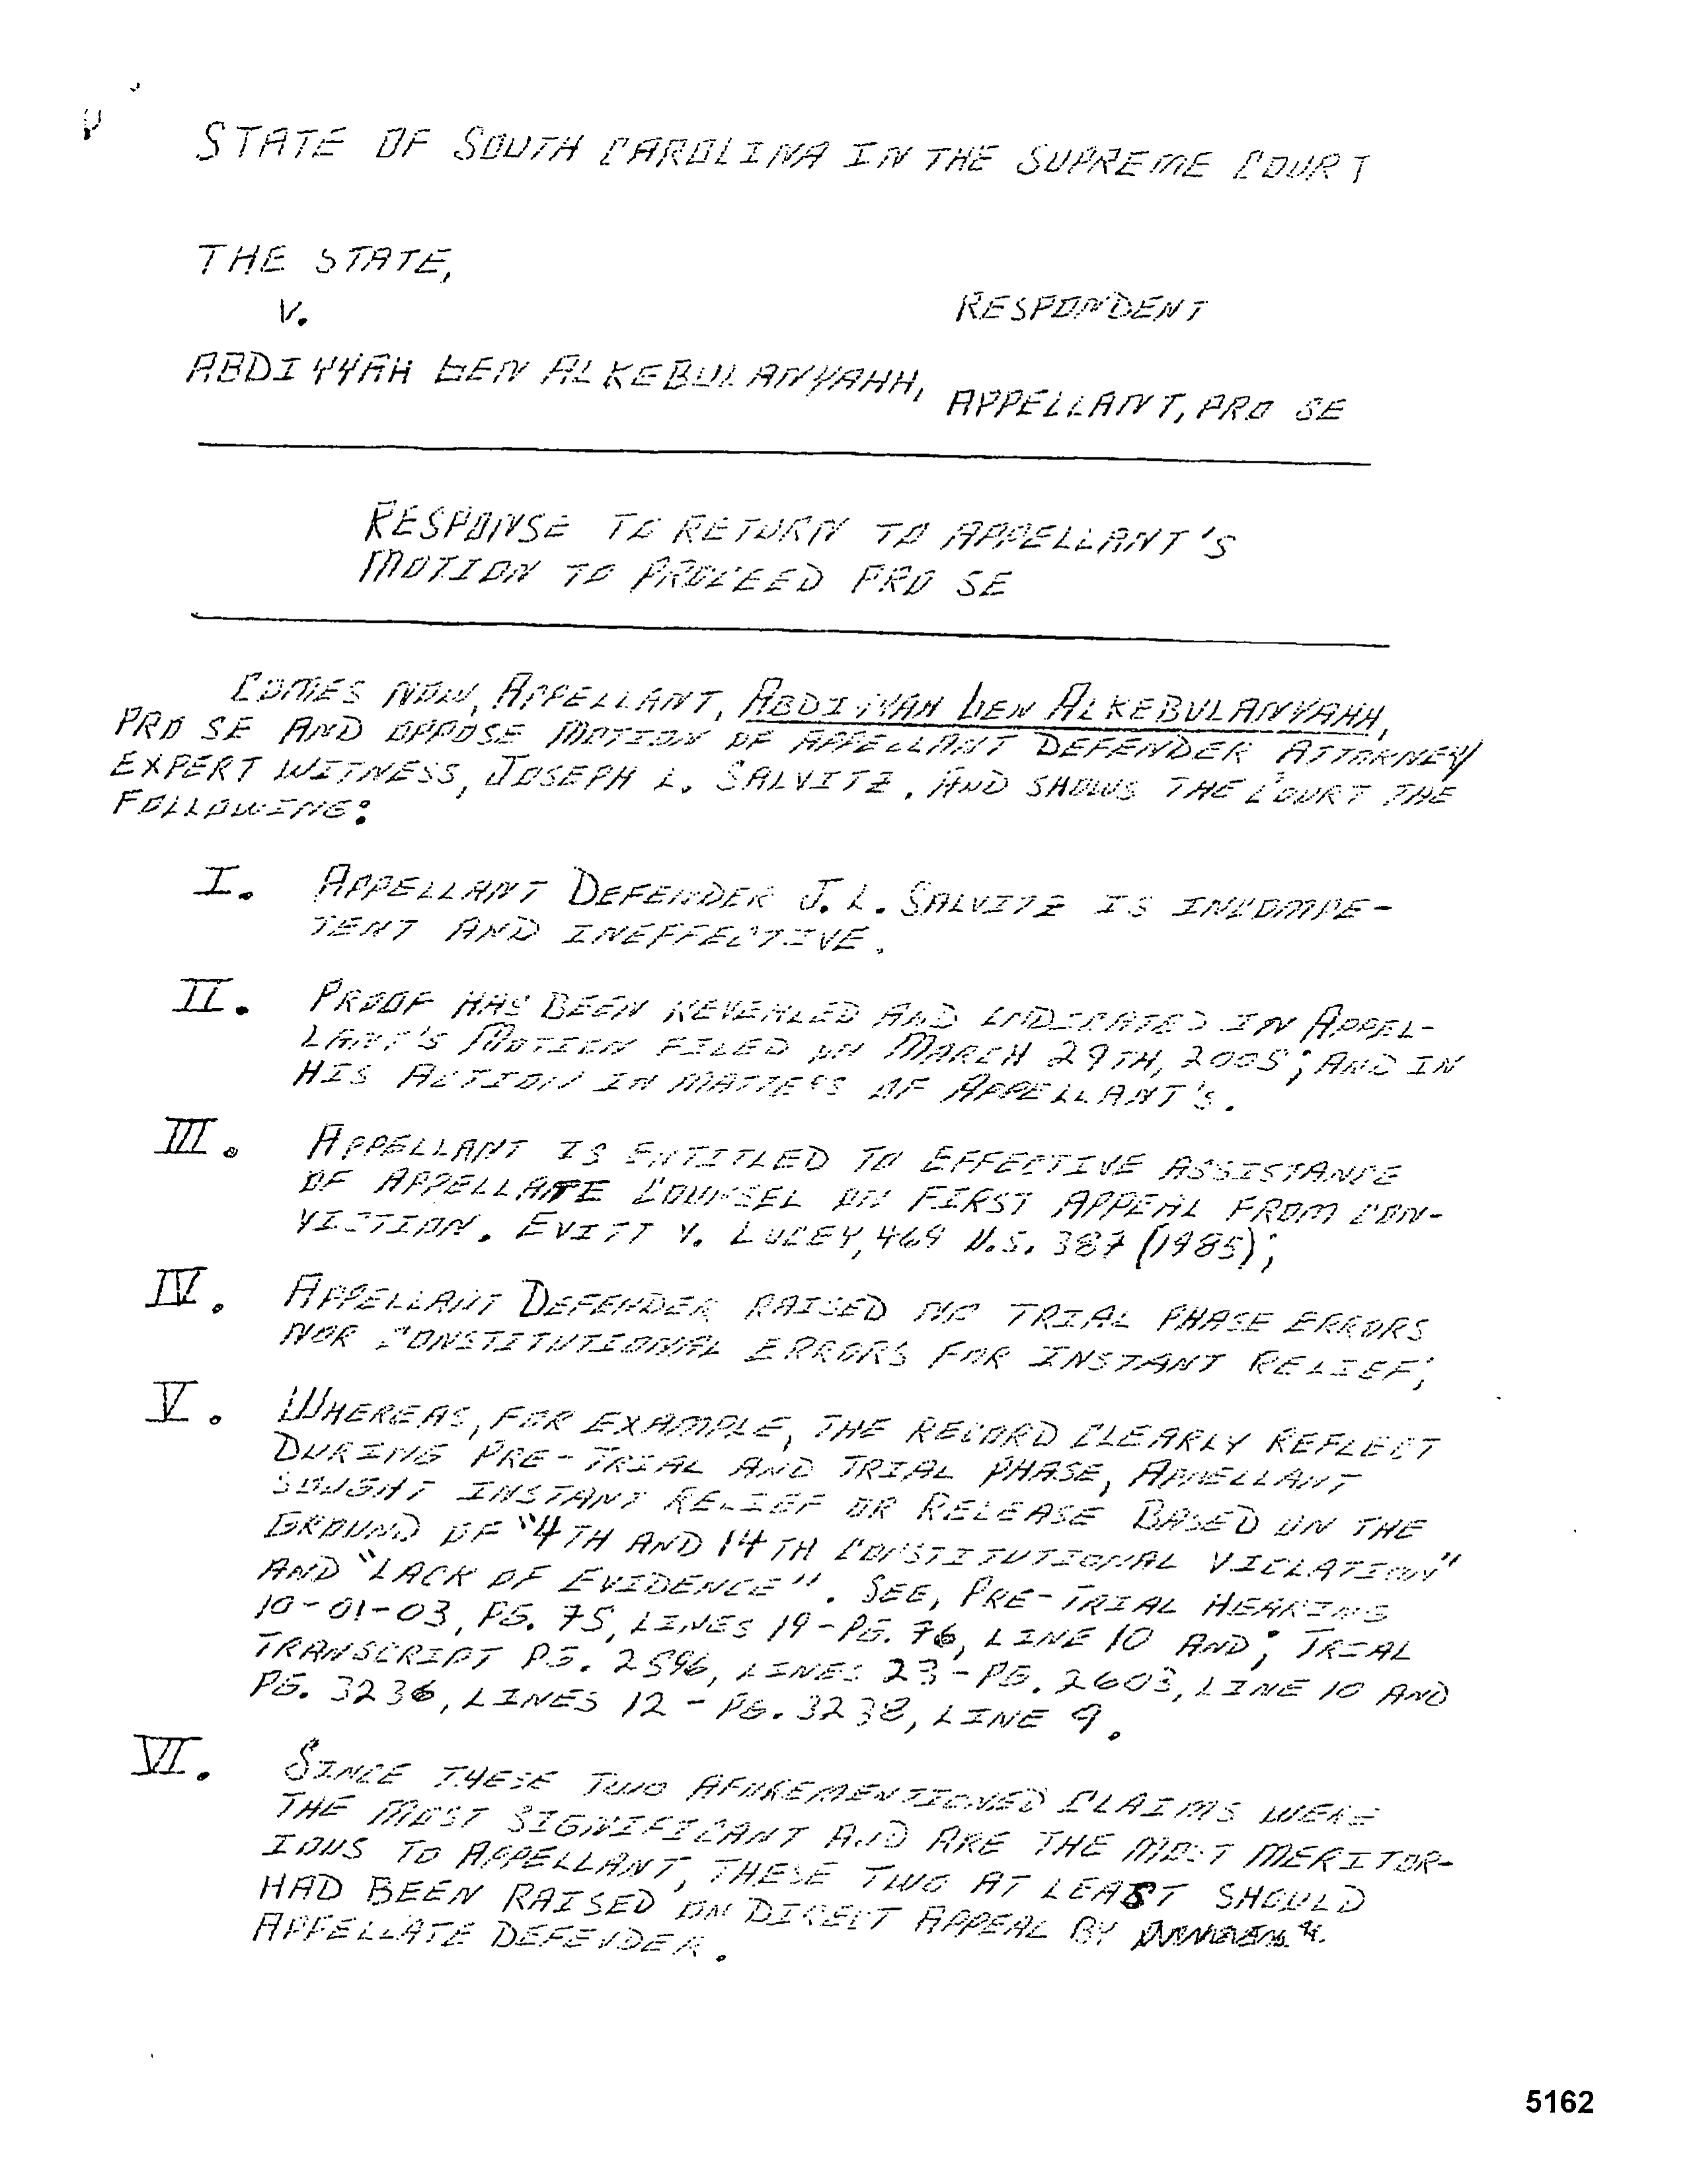 STATE OF SOUTH CAROLINA IN THE SUPREME COURT
THE STATE,
V.
RESPONDENT
ABDIYYAH bEN ALKEBULANYAHH,
APPELLANT, PRO SE
RESPONSE TO RETURN TO APPELLANT'S
MOTION TO PROCEED PRO SE
COMES NOW, APPELLANT, ABDIYYAH bEN ALKEBULANYAHH,
PRO SE AND OPPOSE MOTION OF APPELLANT DEFENDER ATTORNEY
EXPERT WITNESS, JOSEPH L. SALVITZ. AND SHOWS THE COURT THE
FOLLOWING:
I. APPELLANT DEFENDER J. L. SALVITZ IS INCOMPE-
TENT AND INEFFECTIVE.
II. PROOF HAS BEEN REVEALED AND INDICATED IN APPEL-
LANT'S MOTION FILED ON MARCH 29TH, 2005; AND IN
HIS ACTION IN MATTERS OF APPELLANT'S.
III. APPELLANT IS ENTITLED TO EFFECTIVE ASSISTANCE
OF APPELLATE COUNSEL ON FIRST APPEAL FROM CON-
VICTION. EVITT V. LUCEY, 469 U.S. 387 (1985);
IV. APPELLANT DEFENDER RAISED NO TRIAL PHASE ERRORS
NOR CONSTITUTIONAL ERRORS FOR INSTANT RELIEF;
V. WHEREAS, FOR EXAMPLE, THE RECORD CLEARLY REFLECT
DURING PRE-TRIAL AND TRIAL PHASE, APPELLANT
SOUGHT INSTANT RELIEF OR RELEASE BASED ON THE
GROUND OF "4TH AND 14TH CONSTITUTIONAL VIOLATION"
AND "LACK OF EVIDENCE". SEE, PRE-TRIAL HEARING
10-01-03, PG. 75, LINES 19-PG. 76, LINE 10 AND; TRIAL
TRANSCRIPT PG. 2596, LINES 23-PG. 2603, LINE 10 AND
PG. 3236, LINES 12-PG. 3238, LINE 9.
VI. SINCE THESE TWO AFOREMENTIONED CLAIMS WERE
THE MOST SIGNIFICANT AND ARE THE MOST MERITOR-
IOUS TO APPELLANT, THESE TWO AT LEAST SHOULD
HAD BEEN RAISED ON DIRECT APPEAL BY
APPELLATE DEFENDER.
5162